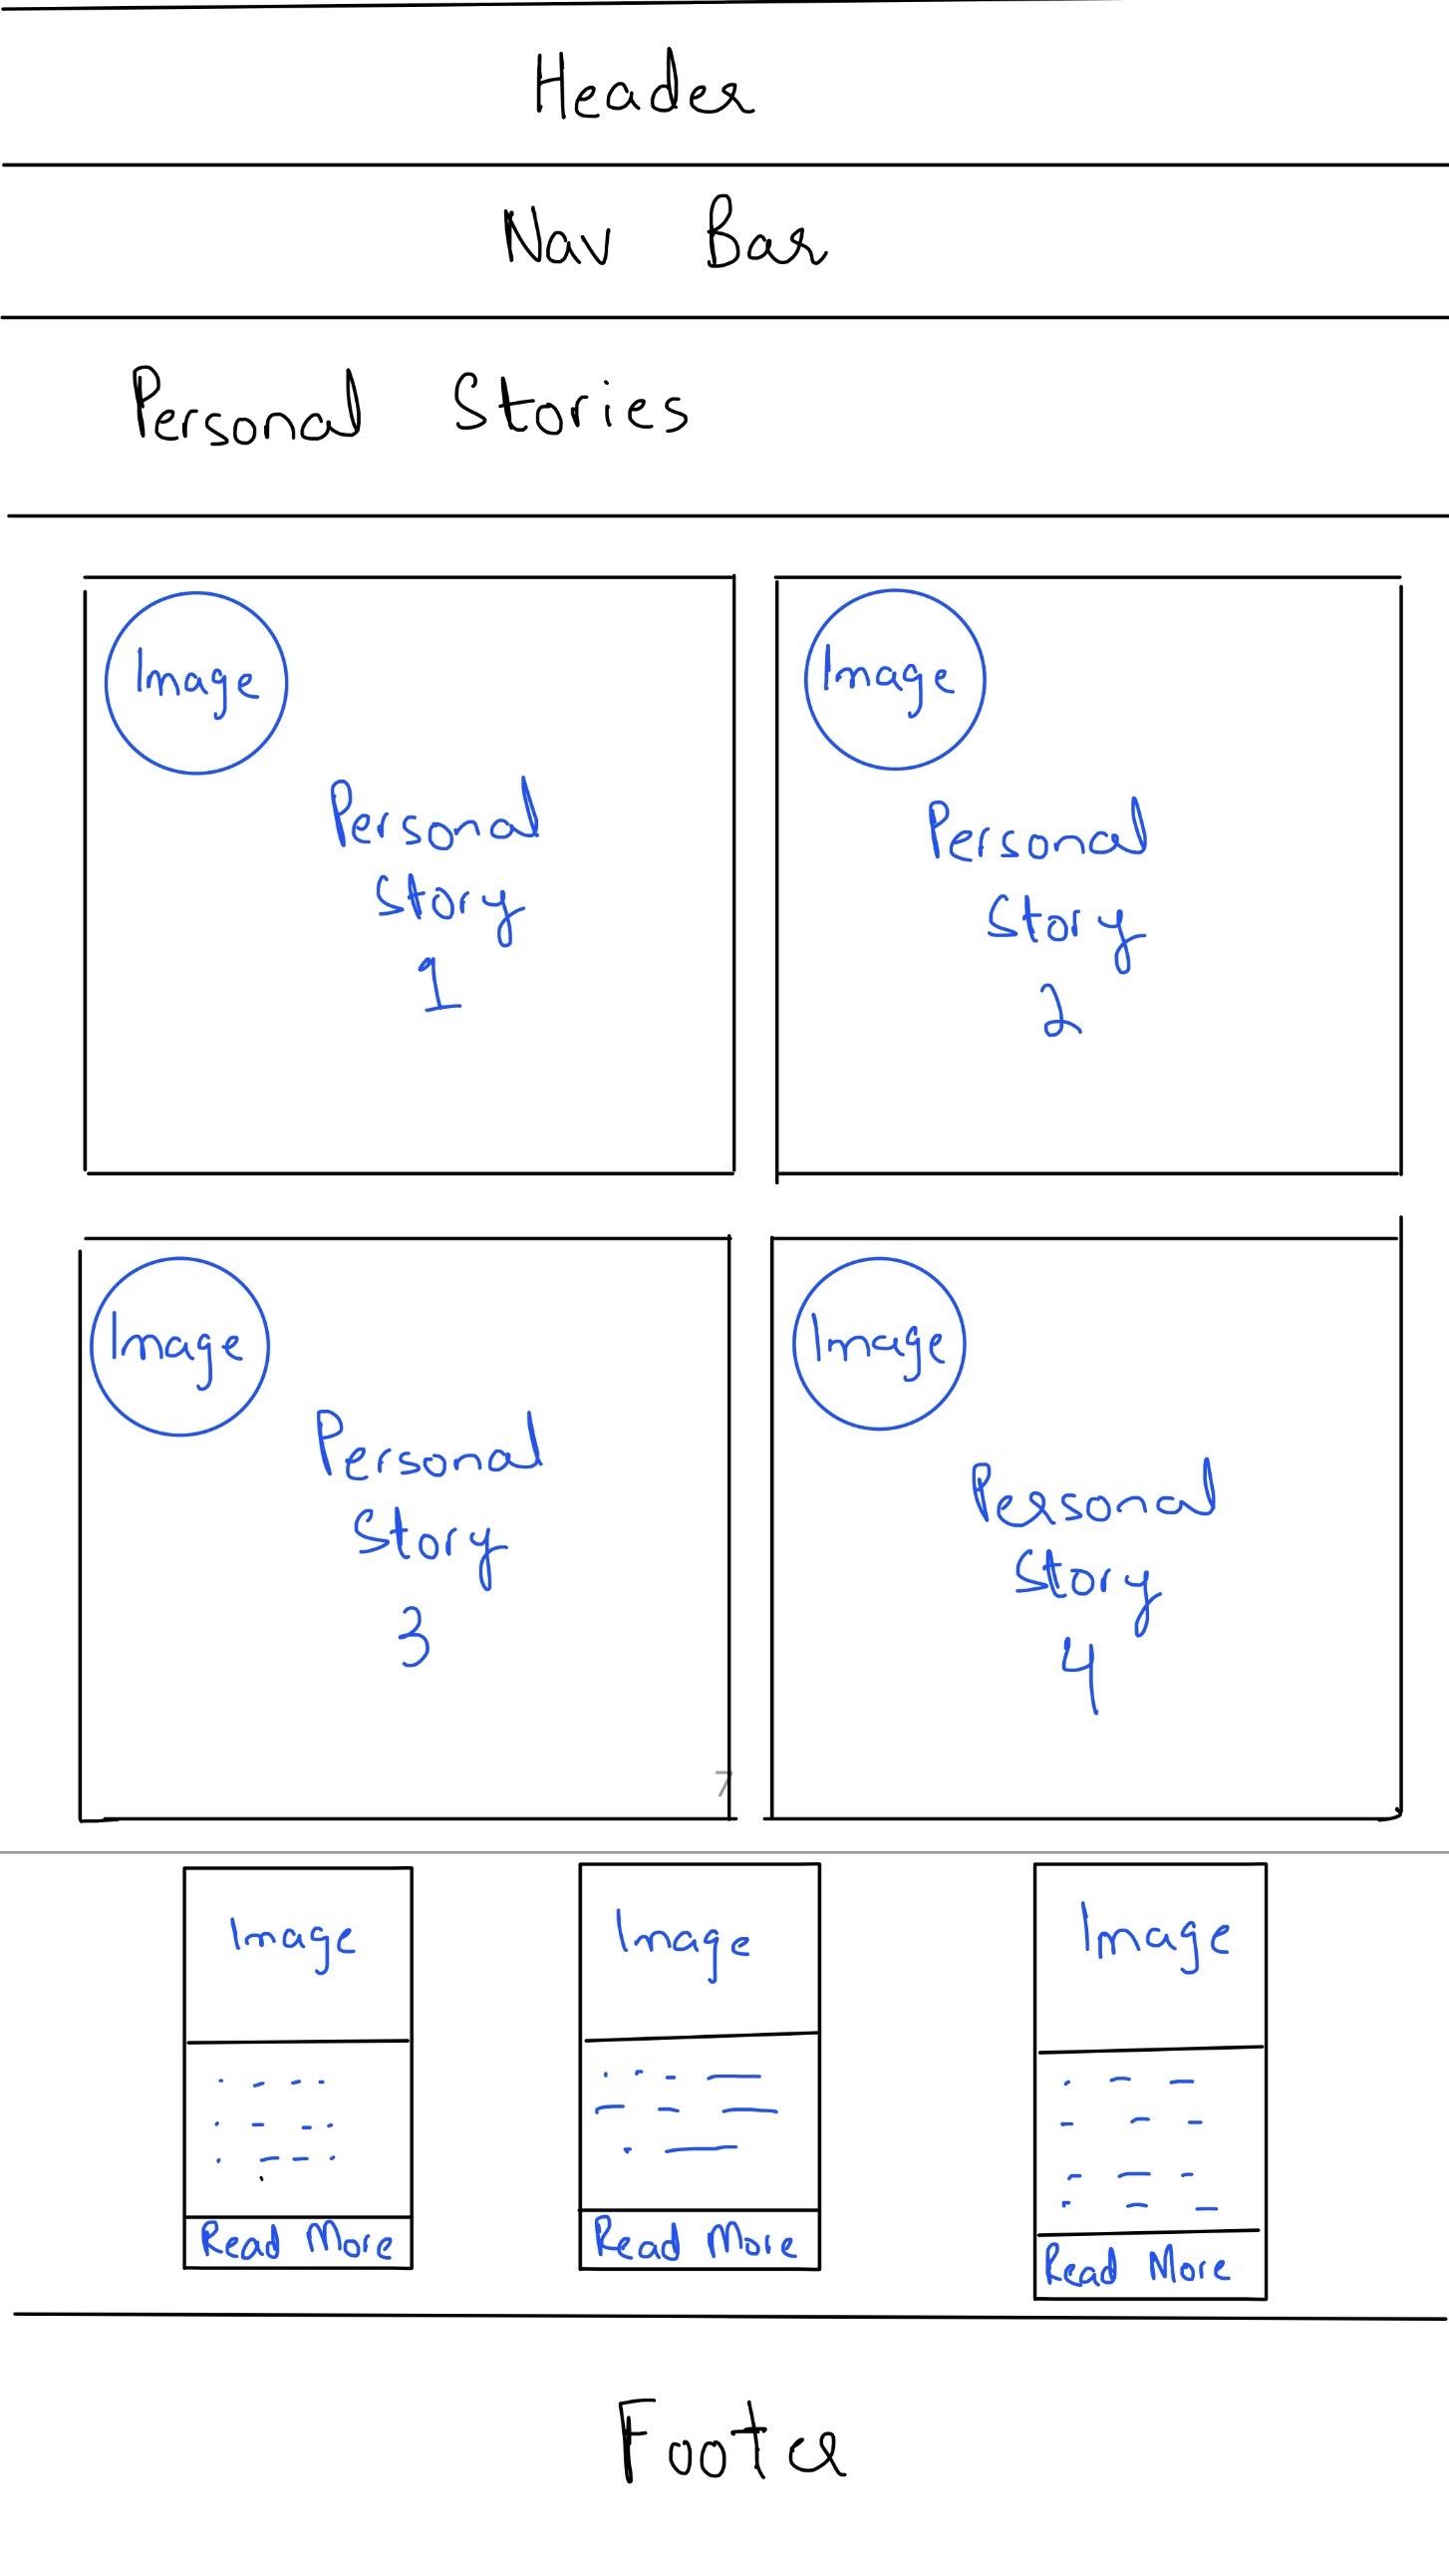 Header
Nav Bar
Personal Stories
Image
Personal
Story
1
Image
Personal
Story
2
Image
Personal
Story
3
Image
Personal
Story
4
7
Image
Read More
Image
Read More
Image
Read More
Footer